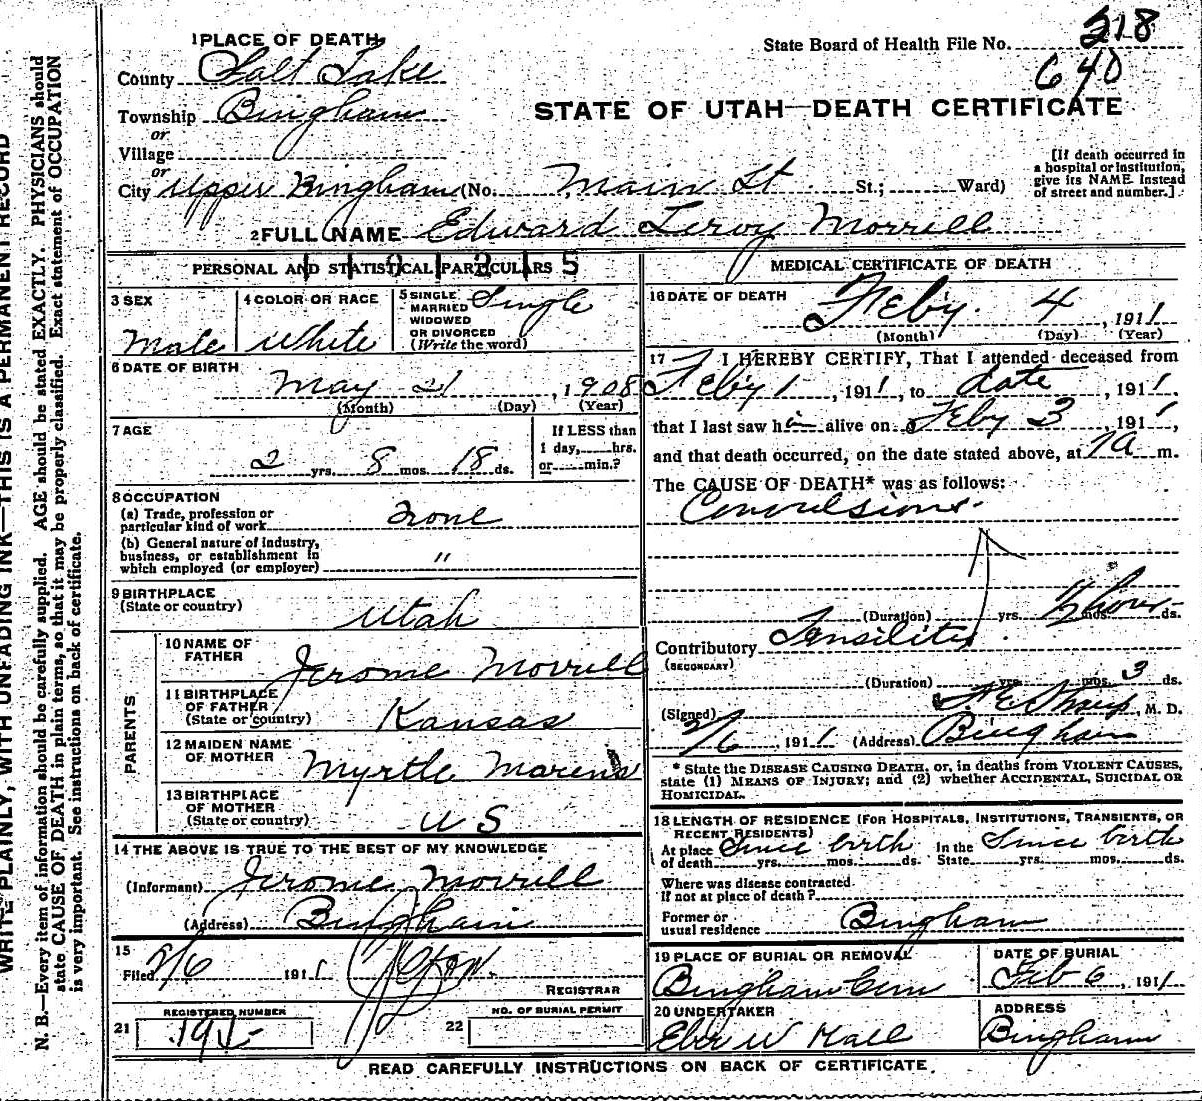 WRITE PLAINLY, WITH UNFADING INK—THIS IS A PERMANENT RECORD
N. B.—Every item of information should be carefully supplied. AGE should be stated EXACTLY. PHYSICIANS should
state CAUSE OF DEATH in plain terms, so that it may be properly classified. Exact statement of OCCUPATION
is very important. See instructions on back of certificate.
1 PLACE OF DEATH
State Board of Health File No. 218
640
County Salt Lake
STATE OF UTAH—DEATH CERTIFICATE
Township Bingham
or
Village
or
City Upper Bingham (No. Main St St.; Ward)
[If death occurred in
a hospital or institution,
give its NAME instead
of street and number.]
2 FULL NAME Edward Leroy Morrell
PERSONAL AND STATISTICAL PARTICULARS
3 SEX
Male
4 COLOR OR RACE
White
5 SINGLE
MARRIED
WIDOWED
OR DIVORCED
(Write the word)
Single
6 DATE OF BIRTH
May 21, 1908
(Month) (Day) (Year)
7 AGE
2 yrs. 8 mos. 18 ds.
If LESS than
1 day, hrs.
or min.?
8 OCCUPATION
(a) Trade, profession or
particular kind of work None
(b) General nature of industry,
business, or establishment in
which employed (or employer) "
9 BIRTHPLACE
(State or country)
Utah
PARENTS
10 NAME OF
FATHER
Jerome Morrell
11 BIRTHPLACE
OF FATHER
(State or country)
Kansas
12 MAIDEN NAME
OF MOTHER
Myrtle
13 BIRTHPLACE
OF MOTHER
(State or country)
U S
14 THE ABOVE IS TRUE TO THE BEST OF MY KNOWLEDGE
(Informant) Jerome Morrell
(Address) Bingham
15
Filed 2/6 1911
REGISTRAR
21
REGISTERED NUMBER
22
NO. OF BURIAL PERMIT
MEDICAL CERTIFICATE OF DEATH
16 DATE OF DEATH
Feby. 4, 1911
(Month) (Day) (Year)
17 I HEREBY CERTIFY, That I attended deceased from
Feby 1, 1911, to date, 1911,
that I last saw him alive on Feby 3, 1911,
and that death occurred, on the date stated above, at 7 a m.
The CAUSE OF DEATH* was as follows:
Convulsions.
(Duration) yrs. mos. ds.
Contributory Tonsilitis
(SECONDARY)
(Duration) yrs. mos. 3 ds.
(Signed) M. D.
2/6, 1911 (Address) Bingham
* State the DISEASE CAUSING DEATH, or, in deaths from VIOLENT CAUSES,
state (1) MEANS OF INJURY; and (2) whether ACCIDENTAL, SUICIDAL OR
HOMICIDAL.
18 LENGTH OF RESIDENCE (FOR HOSPITALS, INSTITUTIONS, TRANSIENTS, OR
RECENT RESIDENTS)
At place of death Since birth yrs. mos. ds. In the State Since birth yrs. mos. ds.
Where was disease contracted
If not at place of death?
Former or
usual residence Bingham
19 PLACE OF BURIAL OR REMOVAL
Bingham Cem
DATE OF BURIAL
Feb 6, 1911
20 UNDERTAKER
Eber W Hall
ADDRESS
Bingham
READ CAREFULLY INSTRUCTIONS ON BACK OF CERTIFICATE.